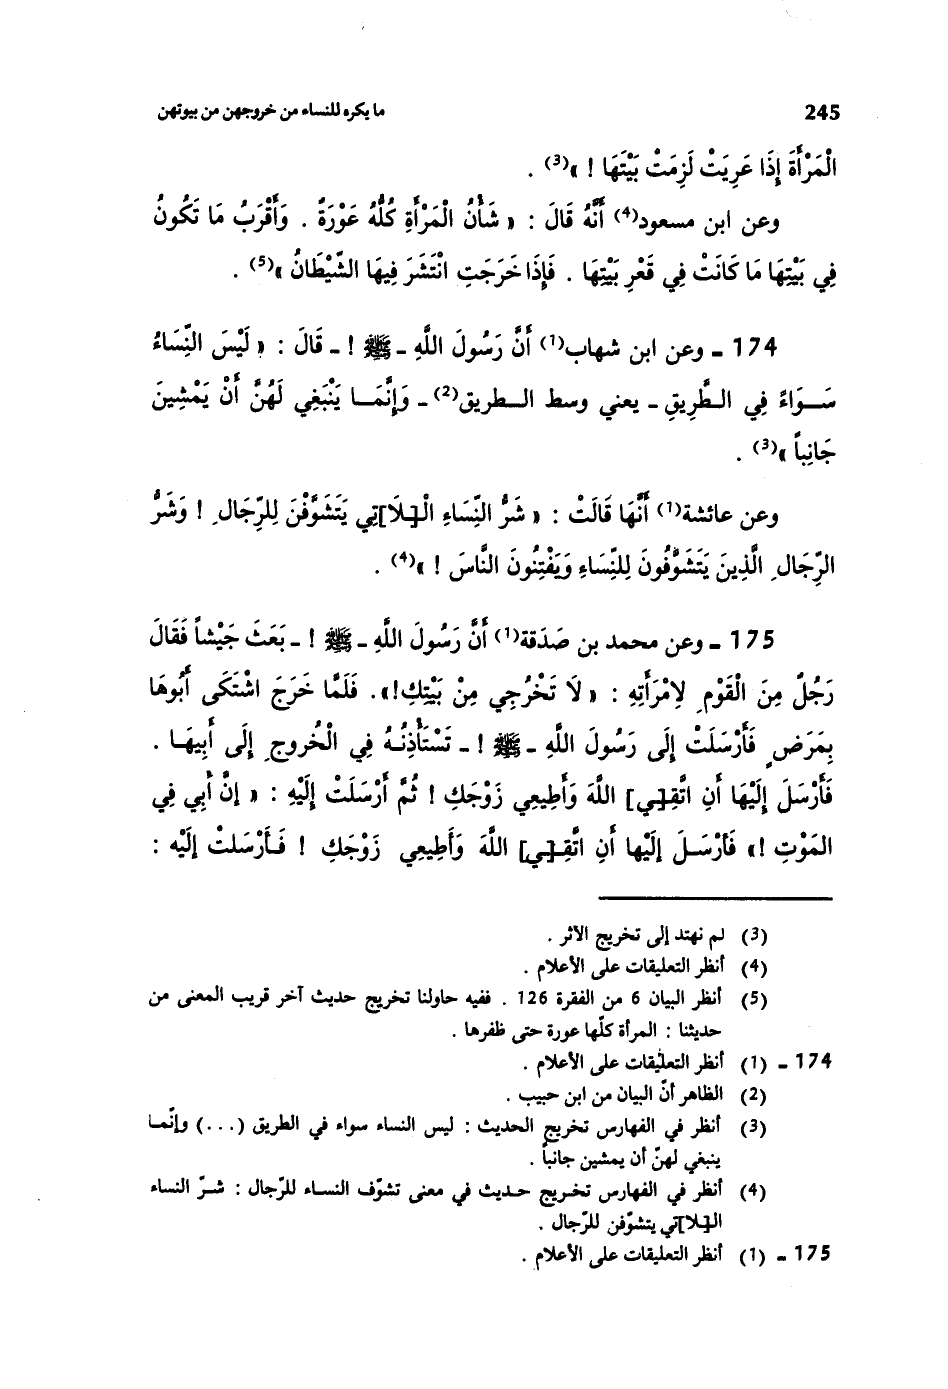 245 ما يكره للنساء من خروجهن من بيوتهن
الْمَرْأَةَ إِذَا عَرِيَتْ لَزِمَتْ بَيْتَهَا ! »(3) .
وعن ابن مسعود(4) أَنَّهُ قَالَ : « شَأْنُ الْمَرْأَةِ كُلُّهُ عَوْرَةٌ . وَأَقْرَبُ مَا تَكُونُ
فِي بَيْتِهَا مَا كَانَتْ فِي قَعْرِ بَيْتِهَا . فَإِذَا خَرَجَتِ انْتَشَرَ فِيهَا الشَّيْطَانُ »(5) .
174 ـ وعن ابن شهاب(1) أَنَّ رَسُولَ اللَّهِ ـ ﷺ ! ـ قَالَ : « لَيْسَ النِّسَاءُ
سَــوَاءً فِي الـطَّرِيقِ ـ يعني وسط الـطريق(2) ـ وَإِنَّمَـا يَنْبَغِي لَهُنَّ أَنْ يَمْشِينَ
جَانِباً »(3) .
وعن عائشة(1) أَنَّهَا قَالَتْ : « شَرُّ النِّسَاءِ الْـ[ـلَا]تِي يَتَشَوَّفْنَ لِلرِّجَالِ ! وَشَرُّ
الرِّجَالِ الَّذِينَ يَتَشَوَّفُونَ لِلنِّسَاءِ وَيَفْتِنُونَ النَّاسَ ! »(4) .
175 ـ وعن محمد بن صَدَقة(1) أَنَّ رَسُولَ اللَّهِ ـ ﷺ ! ـ بَعَثَ جَيْشاً فَقَالَ
رَجُلٌ مِنَ الْقَوْمِ لِامْرَأَتِهِ : « لَا تَخْرُجِي مِنْ بَيْتِكِ!». فَلَمَّا خَرَجَ اشْتَكَى أَبُوهَا
بِمَرَضٍ فَأَرْسَلَتْ إِلَى رَسُولَ اللهِ ـ ﷺ ! ـ تَسْتَأْذِنُـهُ فِي الْخُروجِ إِلَى أَبِيهَـا .
فَأَرْسَلَ إِلَيْهَا أَنِ اتَّقِـ[ـي] اللَّهَ وَأَطِيعِي زَوْجَكِ ! ثُمَّ أَرْسَلَتْ إِلَيْهِ : « إِنَّ أَبِي فِي
المَوْتِ !» فَأَرْسَـلَ إِلَيْها أَنِ اتَّقِـ[ـي] اللَّهَ وَأَطِيعِي زَوْجَكِ ! فَـأَرْسَلتْ إِلَيْهِ :
(3) لم نهتد إلى تخريج الأثر .
(4) أنظر التعليقات على الأعلام .
(5) أنظر البيان 6 من الفقرة 126 . ففيه حاولنا تخريج حديث آخر قريب المعنى من
حديثنا : المرأة كلّها عورة حتى ظفرها .
174 ـ (1) أنظر التعليقات على الأعلام .
(2) الظاهر أنّ البيان من ابن حبيب .
(3) أنظر في الفهارس تخريج الحديث : ليس النساء سواء في الطريق (...) وإنّما
ينبغي لهنّ أن يمشين جانباً .
(4) أنظر في الفهارس تخـريج حـديث في معنى تشوّف النسـاء للرّجال : شـرّ النساء
الـ[ـلا]تي يتشوّفن للرّجال .
175 ـ (1) أنظر التعليقات على الأعلام .